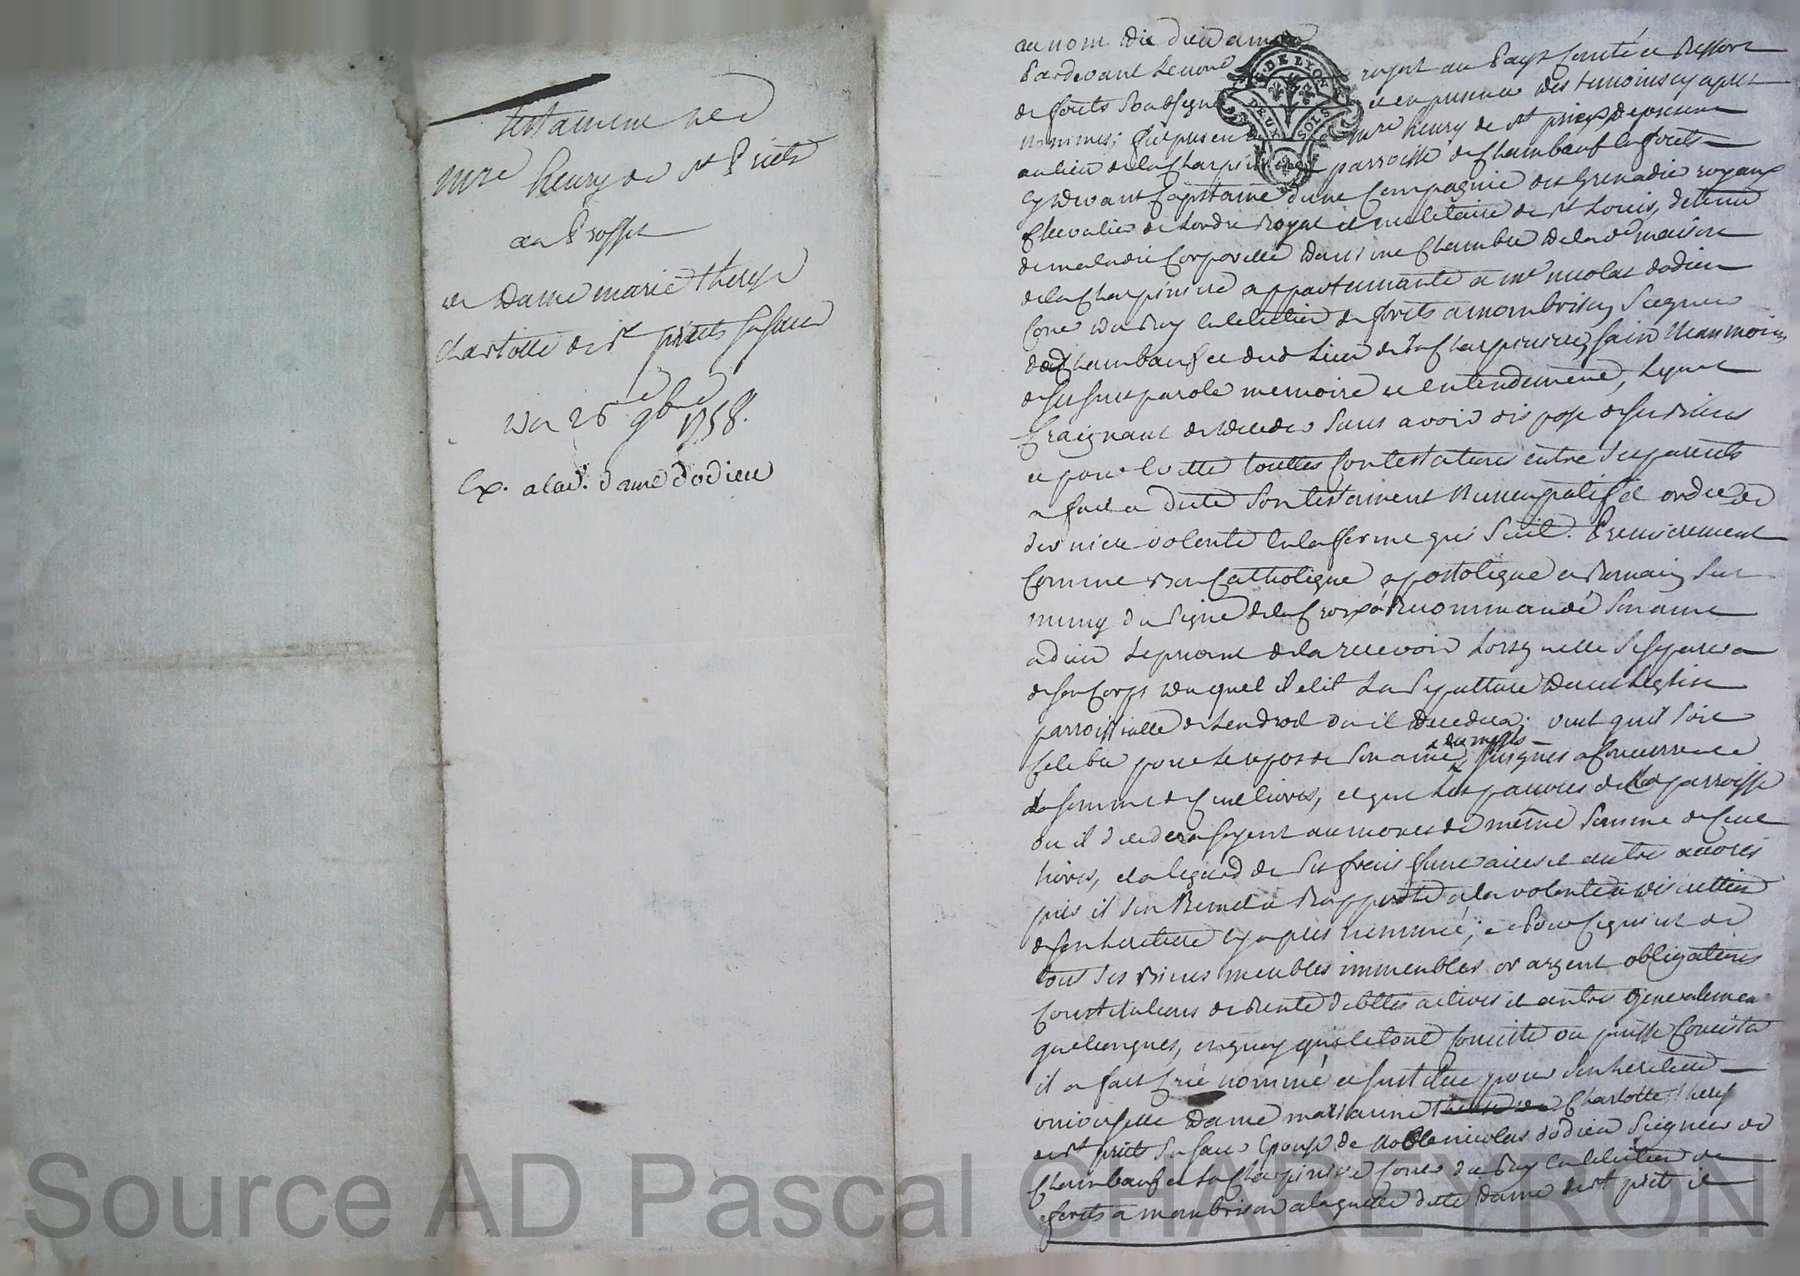 testament de
mre henry de st Priets
au Proffit
de Dame marie therese
charlotte de st priets sa sœur
du 26e 9bre 1758.
Ex. a lad. dame dodieu
au nom de dieu amen
Pardevant le no
royal au Pays Comté et Ressort
de forets soussigné
et en presence des temoins cy apres
nommés; fut present
mre henry de st priest demeurant
au lieu de la Charpin
parroisse de Chambœuf en forets
cy devant Capitaine d'une Compagnie des Grenadie royaux
Chevalier de Lordre Royal et militaire de st Louis, detenu
de maladie Corporelle dans une Chambre de la de maison
de la Charpinire appartenante a me nicolas dodieu
Coner du Roy en l'election de forets a montbrison Seigneur
de Chambœuf et dud. Lieu de la Charpinire, sain neanmoins
de ses sens parole memoire et entendement, Lequel
Craignant de deceder sans avoir dispose de ses Biens
et pour Evitter touttes Contestations entre ses parents
a fait et dicté son testament Nuncupatif et ordce de
derniere volonté en la forme qui suit. Premierement
Comme Bon Catholique apostolique et Romain s'est
muny du signe de la Croix a Recommandé son ame
a dieu Le priant de la recevoir Lorsquelle se separera
de son Corps duquel il elit La sepulture dans Leglise
parroissialle de Lendroit ou il decedera; veut quil soit
Celebré pour le repos de son ame des messes jusques a Concurrence
de la somme de Cent livres, et que Les pauvres de la parroisse
ou il decedera soyent aumonés de même somme de Cent
livres, et a legard de ses frais funeraires et autres œuvres
pies il s'en Remet et Rapporte a la volonté et discretion
de son heritiere cy apres nommée; et Pour Ce qui est de
tous ses Biens meubles immeubles or argent obligations
Constitutions de Rente debttes actives et autres Generalement
quelconques, en quoy que le tout Consiste ou puisse Consister
il a fait Créé nommé et Institué pour son heritiere
universelle Dame marianne Charlotte Therese
de st priets sa sœur Epouse de noble nicolas dodieu Seigneur de
Chambœuf et La Charpinire Coner du Roy en l'election de
forets a montbrison a laquelle ditte Dame de st priets il
G. DE LYON
DEUX SOLS
Source AD Pascal CHAREYRON